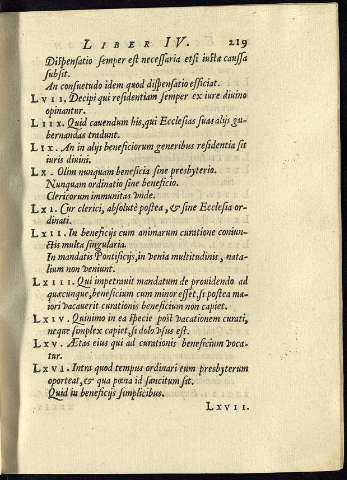 LIBER IV. 219
Dispensatio semper est necessaria etsi iusta caussa
subsit.
An consuetudo idem quod dispensatio efficiat.
LVII. Decipi qui residentiam semper ex iure diuino
opinantur.
LIIX. Quid cauendum his, qui Ecclesias suas alijs gu-
bernandas tradunt.
LIX. An in alijs beneficiorum generibus residentia sit
iuris diuini.
LX. Olim nunquam beneficia sine presbyterio.
Nunquam ordinatio sine beneficio.
Clericorum immunitas vnde.
LXI. Cur clerici, absolutè postea, & sine Ecclesia or-
dinati.
LXII. In beneficijs cum animarum curatione coniun-
ctis multa singularia.
In mandatis Pontificijs, in venia multitudinis, nata-
lium non veniunt.
LXIII. Qui impetrauit mandatum de prouidendo ad
quæcunque, beneficium cum minor esset, si postea ma-
iori vacauerit curationis beneficium non capiet.
LXIV. Quinimo in ea specie post vacationem curati,
neque simplex capiet, si dolo vsus est.
LXV. Ætas eius qui ad curationis beneficium voca-
tur.
LXVI. Intra quod tempus ordinari eum presbyterum
oporteat, & qua pœna id sancitum sit.
Quid in beneficijs simplicibus.
LXVII.